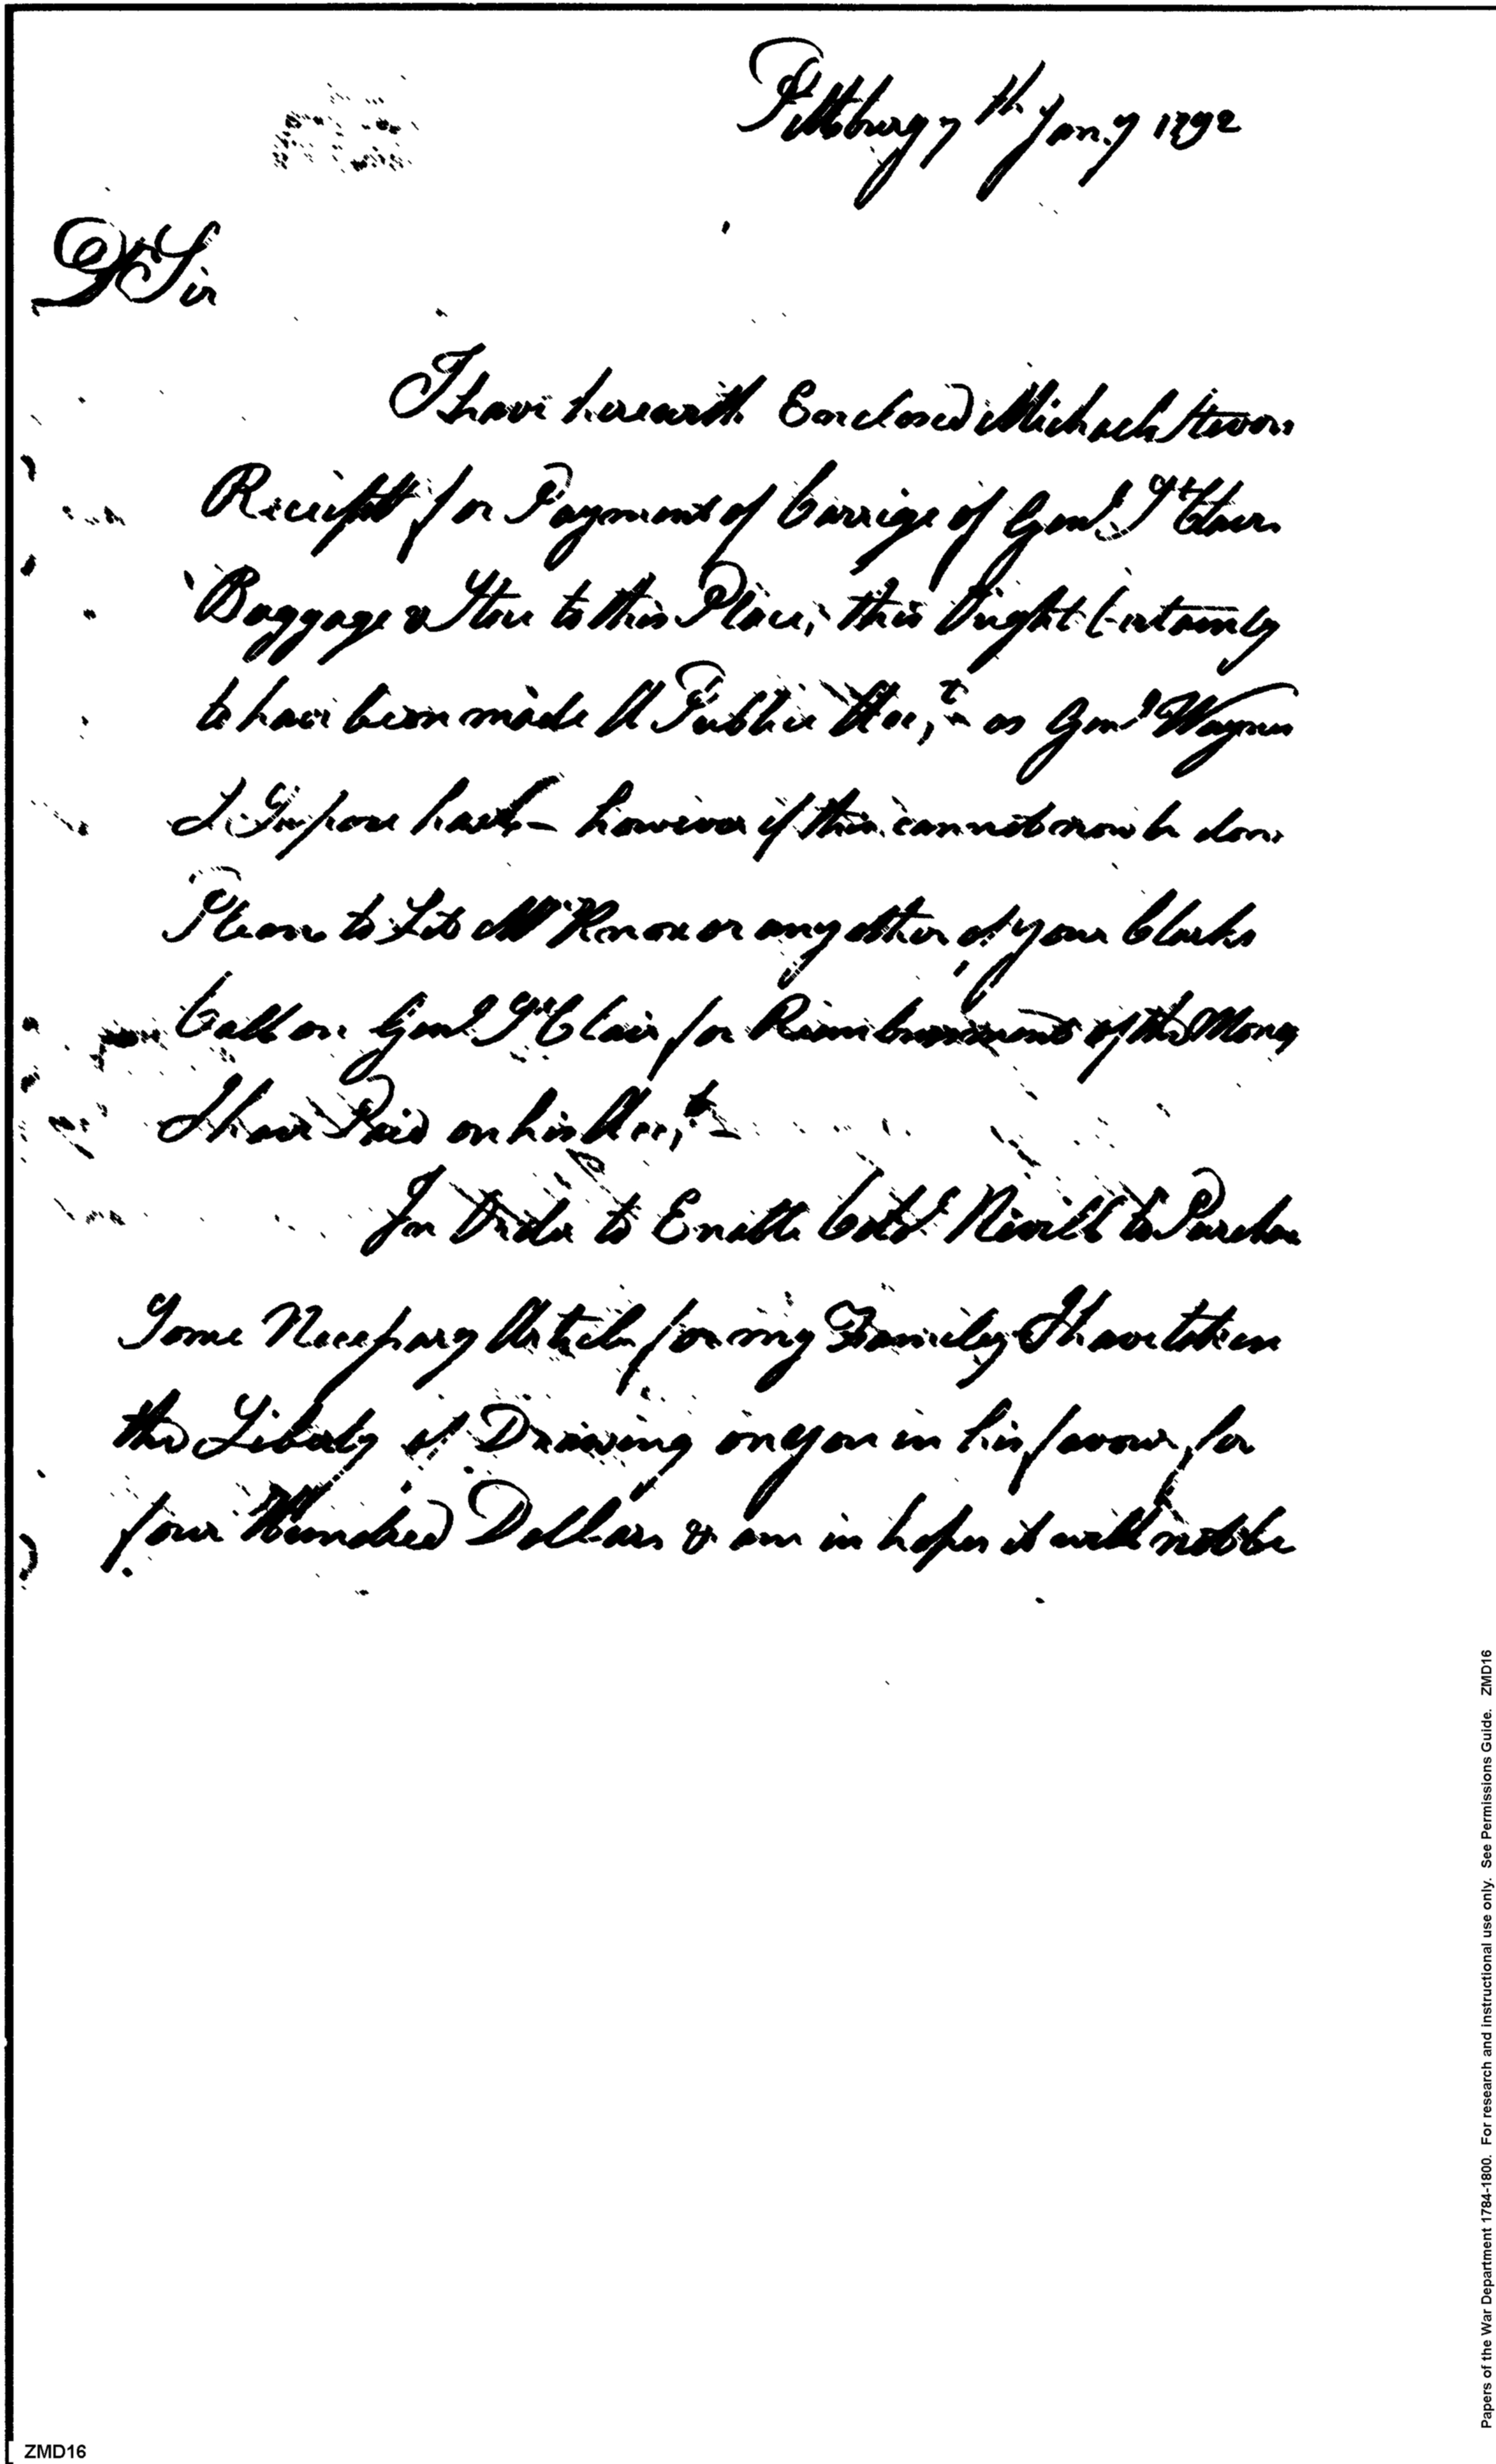 Pittsburg 7th Jany 1792
Dr Sir
I have herewith Enclosed Michael
Receipt for Payment of Carrige of Genl St Clairs
Baggage & Store to this Place, this Ought Certainly
to have been made A Public Acct as Genl Waynes
I Supose hath - however if this cannot now be done
Please to Let Mr Knox or any other of your Clarks
Call on Genl St Clair for Reimbursement of the Money
I have Paid on his Acct -
In Order to Enable Cold Nevill to Purchase
Some Necessary Articles for my Family I have taken
the Liberty of Drawing on you in his favour for
four Hundred Dollars & am in hopes it will not be
Papers of the War Department 1784-1800. For research and instructional use only. See Permissions Guide. ZMD16
ZMD16